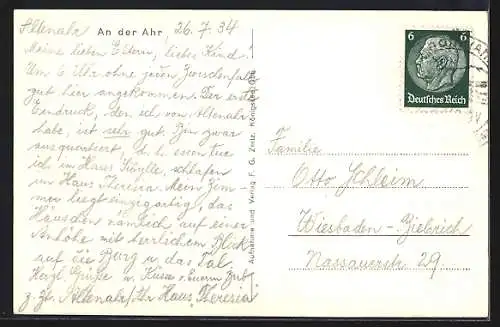 An der Ahr
Altenahr, 26.7.34
Meine lieben Eltern, liebes Kind!
Um 6 Uhr ohne jeden Zwischenfall
gut hier angekommen. Der erste
Eindruck, den ich von Altenahr
habe, ist sehr gut. Bin zwar
ausquartiert, d. h. essen tue
ich in Haus, schlafen
im Haus Theresia. Mein Zim-
mer liegt einzigartig, das
Häuschen nämlich auf einer
Anhöhe mit herrlichem Blick
auf die Burg u. das Tal.
Herzl. Grüße u. Küsse v. Eurem
z. Zt. Altenahr/Ahr Haus Theresia
Aufnahme und Verlag F. G. Zintz, Königswinter
6 6
Deutsches Reich
Familie
Otto Schleim
Wiesbaden-Biebrich
Nassauerstr. 29.